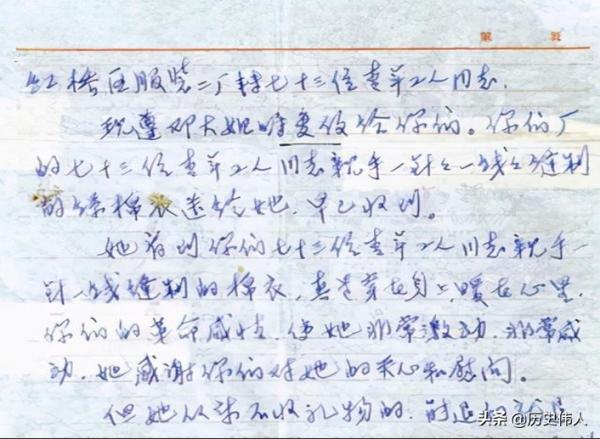 第 頁
红桥区服装二厂转七十三位青年工人同志.
现遵邓大姐嘱复信给你们。你们厂
的七十三位青年工人同志亲手一针一线缝制
的绿棉衣送给她，早已收到。
她看到你们七十三位青年工人同志亲手一
针一线缝制的棉衣，真是穿在身上，暖在心里，
你们的革命感情，使她非常激动，非常感
动，她感谢你们对她的关心和慰问。
但她从来不收礼物的，
头条 @历史伟人